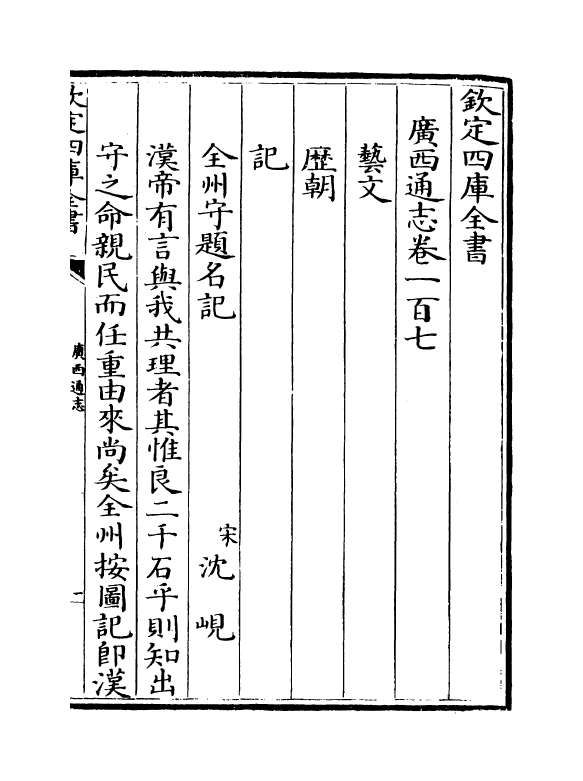 欽定四庫全書
廣西通志卷一百七
藝文
歷朝
記
全州守題名記 宋 沈峴
漢帝有言與我共理者其惟良二千石乎則知出
守之命親民而任重由來尚矣全州按圖記卽漢
欽定四庫全書 廣西通志